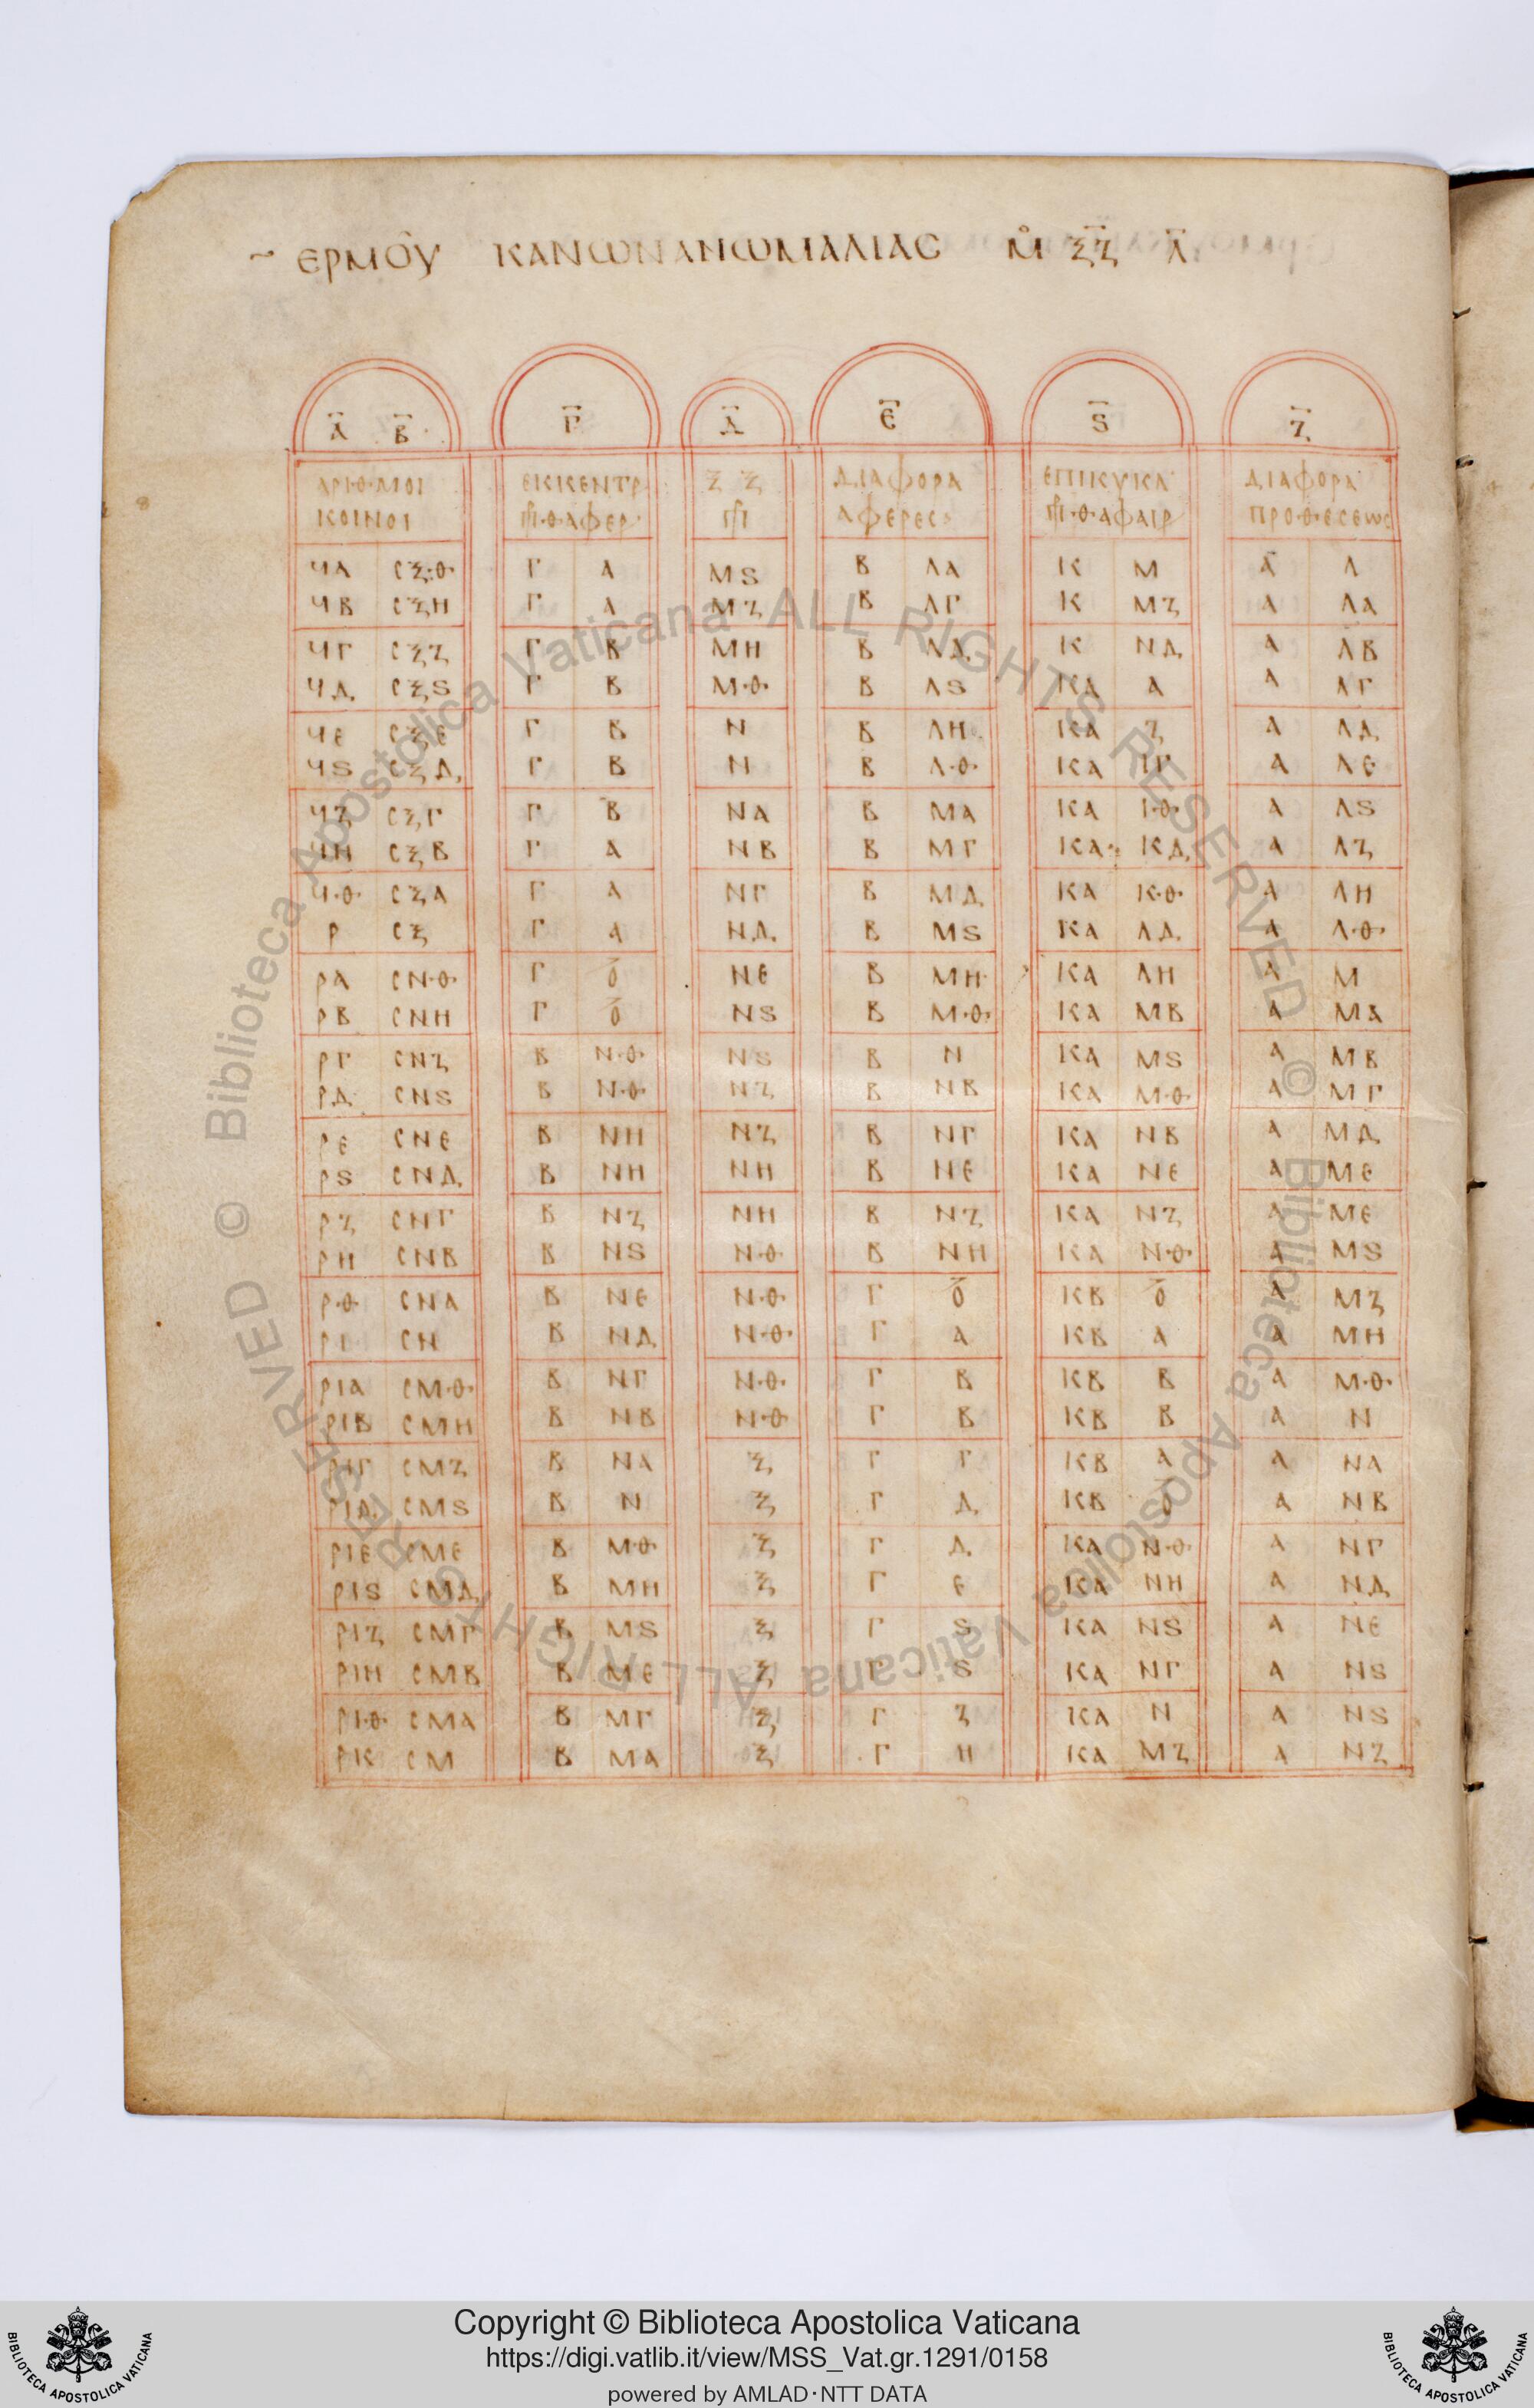 ~ ΕΡΜΟΥ ΚΑΝΩΝ ΑΝΩΜΑΛΙΑΣ Μ̊ ΞΖ Λ̄
Ᾱ Β̄ Γ̄ Δ̄ Ε̄ Ϛ̄ Ζ̄
ΑΡΙΘΜΟΙ ΕΚΚΕΝΤΡ Ξ Ξ ΔΙΑΦΟΡΑ ΕΠΙΚΥΚΛ ΔΙΑΦΟΡΑ
ΚΟΙΝΟΙ ΠΡΘΑΦΕΡ ΑΦΕΡΕΣ ΠΡΘΑΦΑΙΡ ΠΡΟΘΕΣΕΩΣ
ϞΑ ΣΞΘ Γ Α ΜϚ Β ΛΑ Κ Μ Α Λ
ϞΒ ΣΞΗ Γ Α ΜΖ Β ΛΓ Κ ΜΖ Α ΛΑ
ϞΓ ΣΞΖ Γ Β ΜΗ Β ΛΔ Κ ΝΔ Α ΛΒ
ϞΔ ΣΞϚ Γ Β ΜΘ Β ΛϚ ΚΑ Α Α ΛΓ
ϞΕ ΣΞΕ Γ Β Ν Β ΛΗ ΚΑ Ζ Α ΛΔ
ϞϚ ΣΞΔ Γ Β Ν Β ΛΘ ΚΑ ΙΓ Α ΛΕ
ϞΖ ΣΞΓ Γ Β ΝΑ Β ΜΑ ΚΑ ΙΘ Α ΛϚ
ϞΗ ΣΞΒ Γ Α ΝΒ Β ΜΓ ΚΑ ΚΔ Α ΛΖ
ϞΘ ΣΞΑ Γ Α ΝΓ Β ΜΔ ΚΑ ΚΘ Α ΛΗ
Ρ ΣΞ Γ Α ΝΔ Β ΜϚ ΚΑ ΛΔ Α ΛΘ
ΡΑ ΣΝΘ Γ Ο̄ ΝΕ Β ΜΗ ΚΑ ΛΗ Α Μ
ΡΒ ΣΝΗ Γ Ο̄ ΝϚ Β ΜΘ ΚΑ ΜΒ Α ΜΑ
ΡΓ ΣΝΖ Β ΝΘ ΝϚ Β Ν ΚΑ ΜϚ Α ΜΒ
ΡΔ ΣΝϚ Β ΝΘ ΝΖ Β ΝΒ ΚΑ ΜΘ Α ΜΓ
ΡΕ ΣΝΕ Β ΝΗ ΝΖ Β ΝΓ ΚΑ ΝΒ Α ΜΔ
ΡϚ ΣΝΔ Β ΝΗ ΝΗ Β ΝΕ ΚΑ ΝΕ Α ΜΕ
ΡΖ ΣΝΓ Β ΝΖ ΝΗ Β ΝΖ ΚΑ ΝΖ Α ΜΕ
ΡΗ ΣΝΒ Β ΝϚ ΝΘ Β ΝΗ ΚΑ ΝΘ Α ΜϚ
ΡΘ ΣΝΑ Β ΝΕ ΝΘ Γ Ο̄ ΚΒ Ο̄ Α ΜΖ
ΡΙ ΣΝ Β ΝΔ ΝΘ Γ Α ΚΒ Α Α ΜΗ
ΡΙΑ ΣΜΘ Β ΝΓ ΝΘ Γ Β ΚΒ Β Α ΜΘ
ΡΙΒ ΣΜΗ Β ΝΒ ΝΘ Γ Β ΚΒ Β Α Ν
ΡΙΓ ΣΜΖ Β ΝΑ Ξ Γ Γ ΚΒ Α Α ΝΑ
ΡΙΔ ΣΜϚ Β Ν Ξ Γ Δ ΚΒ Ο̄ Α ΝΒ
ΡΙΕ ΣΜΕ Β ΜΘ Ξ Γ Δ ΚΑ ΝΘ Α ΝΓ
ΡΙϚ ΣΜΔ Β ΜΗ Ξ Γ Ε ΚΑ ΝΗ Α ΝΔ
ΡΙΖ ΣΜΓ Β ΜϚ Ξ Γ Ϛ ΚΑ ΝϚ Α ΝΕ
ΡΙΗ ΣΜΒ Β ΜΕ Ξ Γ Ϛ ΚΑ ΝΓ Α ΝϚ
ΡΙΘ ΣΜΑ Β ΜΓ Ξ Γ Ζ ΚΑ Ν Α ΝϚ
ΡΚ ΣΜ Β ΜΑ Ξ Γ Η ΚΑ ΜΖ Α ΝΖ
© Biblioteca Apostolica Vaticana ALL RIGHTS RESERVED © Biblioteca Apostolica Vaticana ALL RIGHTS RESERVED
Copyright © Biblioteca Apostolica Vaticana
https://digi.vatlib.it/view/MSS_Vat.gr.1291/0158
powered by AMLAD·NTT DATA
BIBLIOTECA APOSTOLICA VATICANA
BIBLIOTECA APOSTOLICA VATICANA